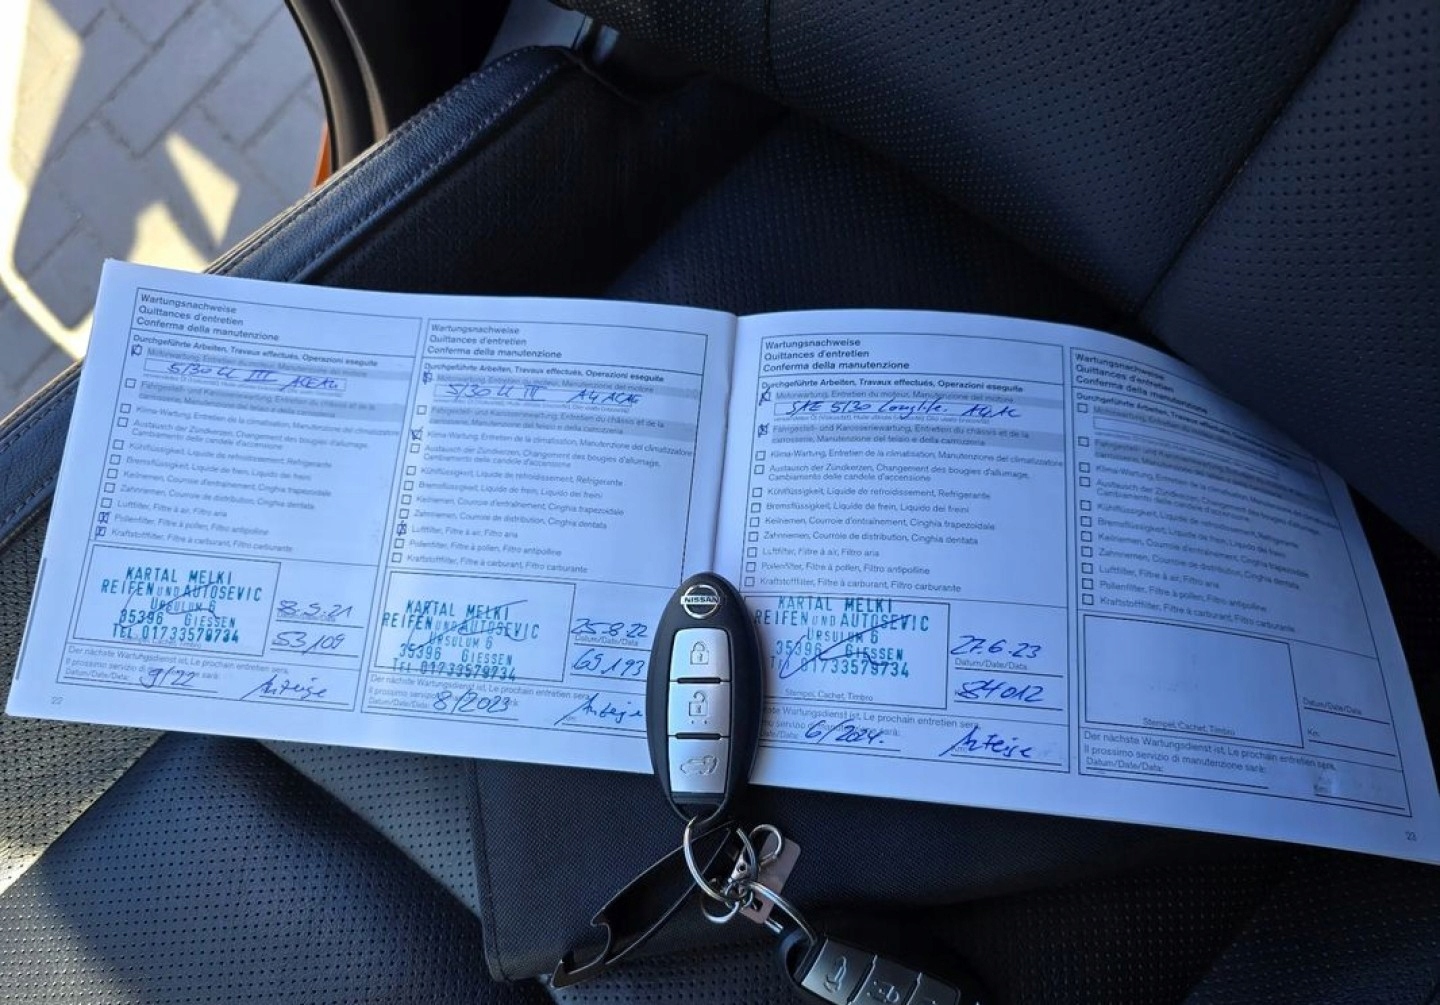 Wartungsnachweise
Quittances d'entretien
Conferma della manutenzione
Durchgeführte Arbeiten, Travaux effectués, Operazioni eseguite
Motorwartung, Entretien du moteur, Manutenzione del motore
5/30 LL III
Klima-Wartung, Entretien de la climatisation, Manutenzione del climatizzatore
Austausch der Zündkerzen, Changement des bougies d'allumage,
Cambiamento delle candele d'accensione
Kühlflüssigkeit, Liquide de refroidissement, Refrigerante
Bremsflüssigkeit, Liquide de frein, Liquido dei freni
Keinemen, Courroie d'entraînement, Cinghia trapezoidale
Zahnriemen, Courroie de distribution, Cinghia dentata
Luftfilter, Filtre à air, Filtro aria
Pollenfilter, Filtre à pollen, Filtro antipolline
Kraftstofffilter, Filtre à carburant, Filtro carburante
KARTAL MELKI
REIFEN UND AUTOSEVIC
URSULUM 6
35396 GIESSEN
TEL 01733579734
8.5.21
53109
Der nächste Wartungsdienst ist, Le prochain entretien sera,
Il prossimo servizio di manutenzione sarà:
Datum/Date/Data: 9/22
Anzeige
22
Wartungsnachweise
Quittances d'entretien
Conferma della manutenzione
Durchgeführte Arbeiten, Travaux effectués, Operazioni eseguite
Motorwartung, Entretien du moteur, Manutenzione del motore
5/30 LL III
Fahrgestell- und Karosseriewartung, Entretien du châssis et de la
carrosserie, Manutenzione del telaio e della carrozzeria
Klima-Wartung, Entretien de la climatisation, Manutenzione del climatizzatore
Austausch der Zündkerzen, Changement des bougies d'allumage,
Cambiamento delle candele d'accensione
Kühlflüssigkeit, Liquide de refroidissement, Refrigerante
Bremsflüssigkeit, Liquide de frein, Liquido dei freni
Keinemen, Courroie d'entraînement, Cinghia trapezoidale
Zahnriemen, Courroie de distribution, Cinghia dentata
Luftfilter, Filtre à air, Filtro aria
Pollenfilter, Filtre à pollen, Filtro antipolline
Kraftstofffilter, Filtre à carburant, Filtro carburante
KARTAL MELKI
REIFEN UND AUTOSEVIC
URSULUM 6
35396 GIESSEN
TEL 01733579734
25.8.22
Datum/Date/Data
65193
Der nächste Wartungsdienst ist, Le prochain entretien sera,
Il prossimo servizio di manutenzione sarà:
Datum/Date/Data: 8/2023
Anzeige
Wartungsnachweise
Quittances d'entretien
Conferma della manutenzione
Durchgeführte Arbeiten, Travaux effectués, Operazioni eseguite
Motorwartung, Entretien du moteur, Manutenzione del motore
SAE 5/30 Longlife.
Fahrgestell- und Karosseriewartung, Entretien du châssis et de la
carrosserie, Manutenzione del telaio e della carrozzeria
Klima-Wartung, Entretien de la climatisation, Manutenzione del climatizzatore
Austausch der Zündkerzen, Changement des bougies d'allumage,
Cambiamento delle candele d'accensione
Kühlflüssigkeit, Liquide de refroidissement, Refrigerante
Bremsflüssigkeit, Liquide de frein, Liquido dei freni
Keinemen, Courroie d'entraînement, Cinghia trapezoidale
Zahnriemen, Courroie de distribution, Cinghia dentata
Luftfilter, Filtre à air, Filtro aria
Pollenfilter, Filtre à pollen, Filtro antipolline
Kraftstofffilter, Filtre à carburant, Filtro carburante
KARTAL MELKI
REIFEN UND AUTOSEVIC
URSULUM 6
35396 GIESSEN
TEL 01733579734
Stempel, Cachet, Timbro
27.6.23
Datum/Date/Data
84012
nächste Wartungsdienst ist, Le prochain entretien sera,
servizio di manutenzione sarà:
Datum/Date/Data: 6/2024.
Anzeige
Wartungsnachweise
Quittances d'entretien
Conferma della manutenzione
Durchgeführte Arbeiten, Travaux effectués, Operazioni eseguite
Klima-Wartung, Entretien de la climatisation, Manutenzione
Austausch der Zündkerzen, Changement des bougies d'allumage,
Cambiamento delle candele d'accensione
Kühlflüssigkeit, Liquide de refroidissement, Refrigerante
Bremsflüssigkeit, Liquide de frein, Liquido dei freni
Keinemen, Courroie d'entraînement, Cinghia trapezoidale
Zahnriemen, Courroie de distribution, Cinghia dentata
Luftfilter, Filtre à air, Filtro aria
Pollenfilter, Filtre à pollen, Filtro antipolline
Kraftstofffilter, Filtre à carburant, Filtro carburante
Stempel, Cachet, Timbro
Datum/Date/Data
Km
Der nächste Wartungsdienst ist, Le prochain entretien sera,
Il prossimo servizio di manutenzione sarà:
Datum/Date/Data:
23
NISSAN